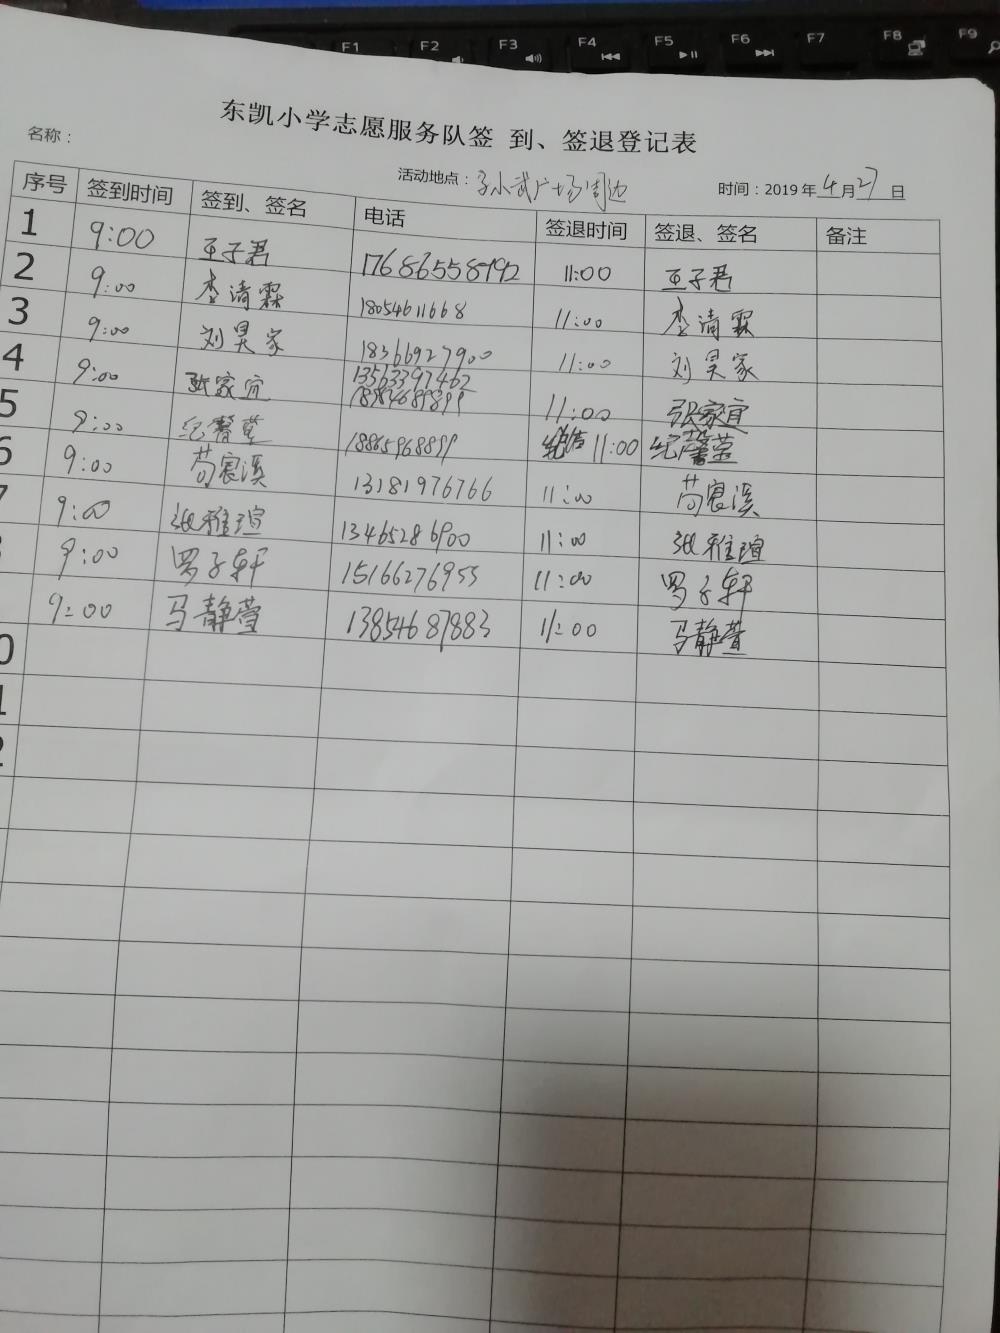 F1 F2 F3 F4 F5 F6 F7 F8 F9
东凯小学志愿服务队签 到、签退登记表
名称：
活动地点：孙武广场周边 时间：2019年4月27日
序号 签到时间 签到、签名 电话 签退时间 签退、签名 备注
1 9:00 王子君 17686558792 11:00 王子君
2 9:00 李清霖 18054611668 11:00 李清霖
3 9:00 刘昊家 18366927900 11:00 刘昊家
4 9:00 张家宜 13563397462 11:00 张家宜
5 9:00 纪馨莹 18865968899 11:00 纪馨莹
6 9:00 苟宸溪 13181976766 11:00 苟宸溪
9:00 张雅瑄 13465286900 11:00 张雅瑄
9:00 罗子轩 15166276955 11:00 罗子轩
9:00 马静萱 13854687883 11:00 马静萱
0
1
2